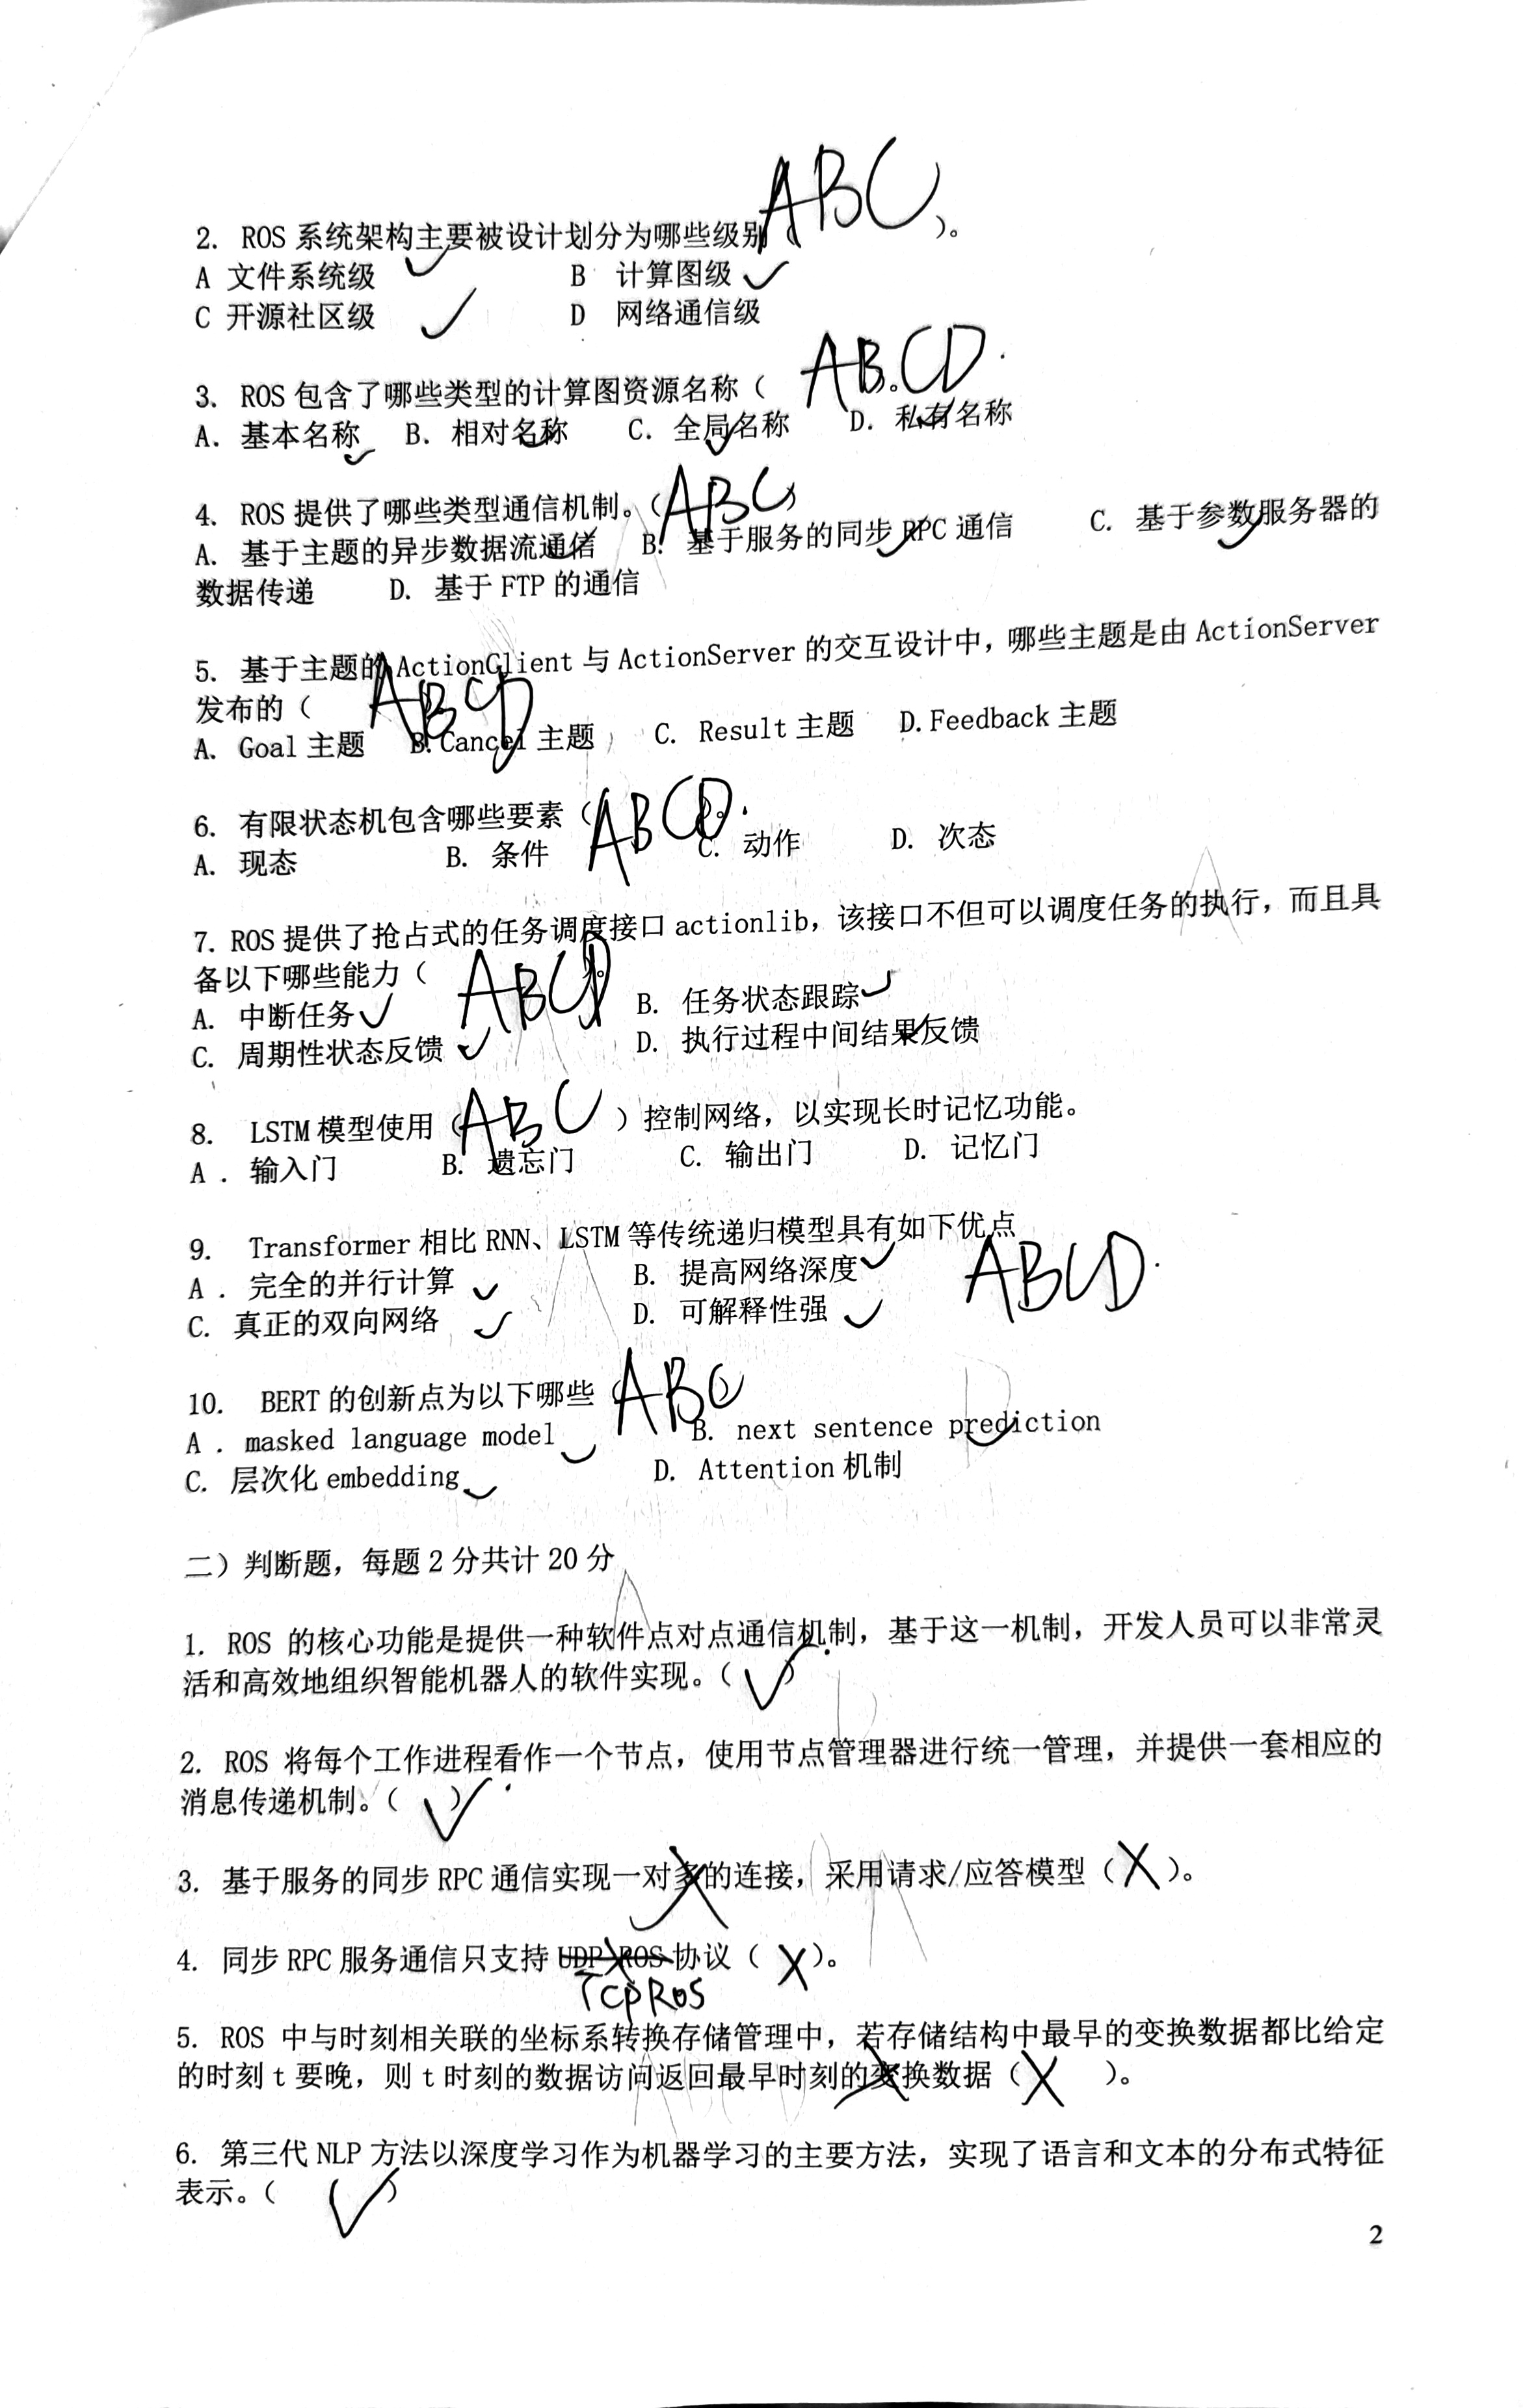 2. ROS 系统架构主要被设计划分为哪些级别( ABC )。
A 文件系统级 ✓ B 计算图级 ✓
C 开源社区级 ✓ D 网络通信级
3. ROS 包含了哪些类型的计算图资源名称( ABCD )。
A. 基本名称 ✓ B. 相对名称 ✓ C. 全局名称 ✓ D. 私有名称 ✓
4. ROS 提供了哪些类型通信机制。( ABC )
A. 基于主题的异步数据流通信 ✓ B. 基于服务的同步 RPC 通信 ✓ C. 基于参数服务器的 ✓
数据传递 D. 基于 FTP 的通信
5. 基于主题的 ActionClient 与 ActionServer 的交互设计中，哪些主题是由 ActionServer
发布的( ABCD
A. Goal 主题 B. Cancel 主题 C. Result 主题 D. Feedback 主题
6. 有限状态机包含哪些要素( ABCD )。
A. 现态 B. 条件 C. 动作 D. 次态
7. ROS 提供了抢占式的任务调度接口 actionlib，该接口不但可以调度任务的执行，而且具
备以下哪些能力( ABCD )。
A. 中断任务 ✓ B. 任务状态跟踪 ✓
C. 周期性状态反馈 ✓ D. 执行过程中间结果反馈 ✓
8. LSTM 模型使用( ABC )控制网络，以实现长时记忆功能。
A . 输入门 B. 遗忘门 C. 输出门 D. 记忆门
9. Transformer 相比 RNN、LSTM 等传统递归模型具有如下优点 ABCD.
A . 完全的并行计算 ✓ B. 提高网络深度 ✓
C. 真正的双向网络 ✓ D. 可解释性强 ✓
10. BERT 的创新点为以下哪些( ABC )
A . masked language model ✓ B. next sentence prediction ✓
C. 层次化 embedding ✓ D. Attention 机制
二）判断题，每题 2 分共计 20 分
1. ROS 的核心功能是提供一种软件点对点通信机制，基于这一机制，开发人员可以非常灵
活和高效地组织智能机器人的软件实现。( ✓ )
2. ROS 将每个工作进程看作一个节点，使用节点管理器进行统一管理，并提供一套相应的
消息传递机制。( ✓ )
3. 基于服务的同步 RPC 通信实现一对多的连接，采用请求/应答模型( X )。
4. 同步 RPC 服务通信只支持 UDP ROS 协议( X )。
TCPROS
5. ROS 中与时刻相关联的坐标系转换存储管理中，若存储结构中最早的变换数据都比给定
的时刻 t 要晚，则 t 时刻的数据访问返回最早时刻的变换数据( X )。
6. 第三代 NLP 方法以深度学习作为机器学习的主要方法，实现了语言和文本的分布式特征
表示。( ✓ )
2